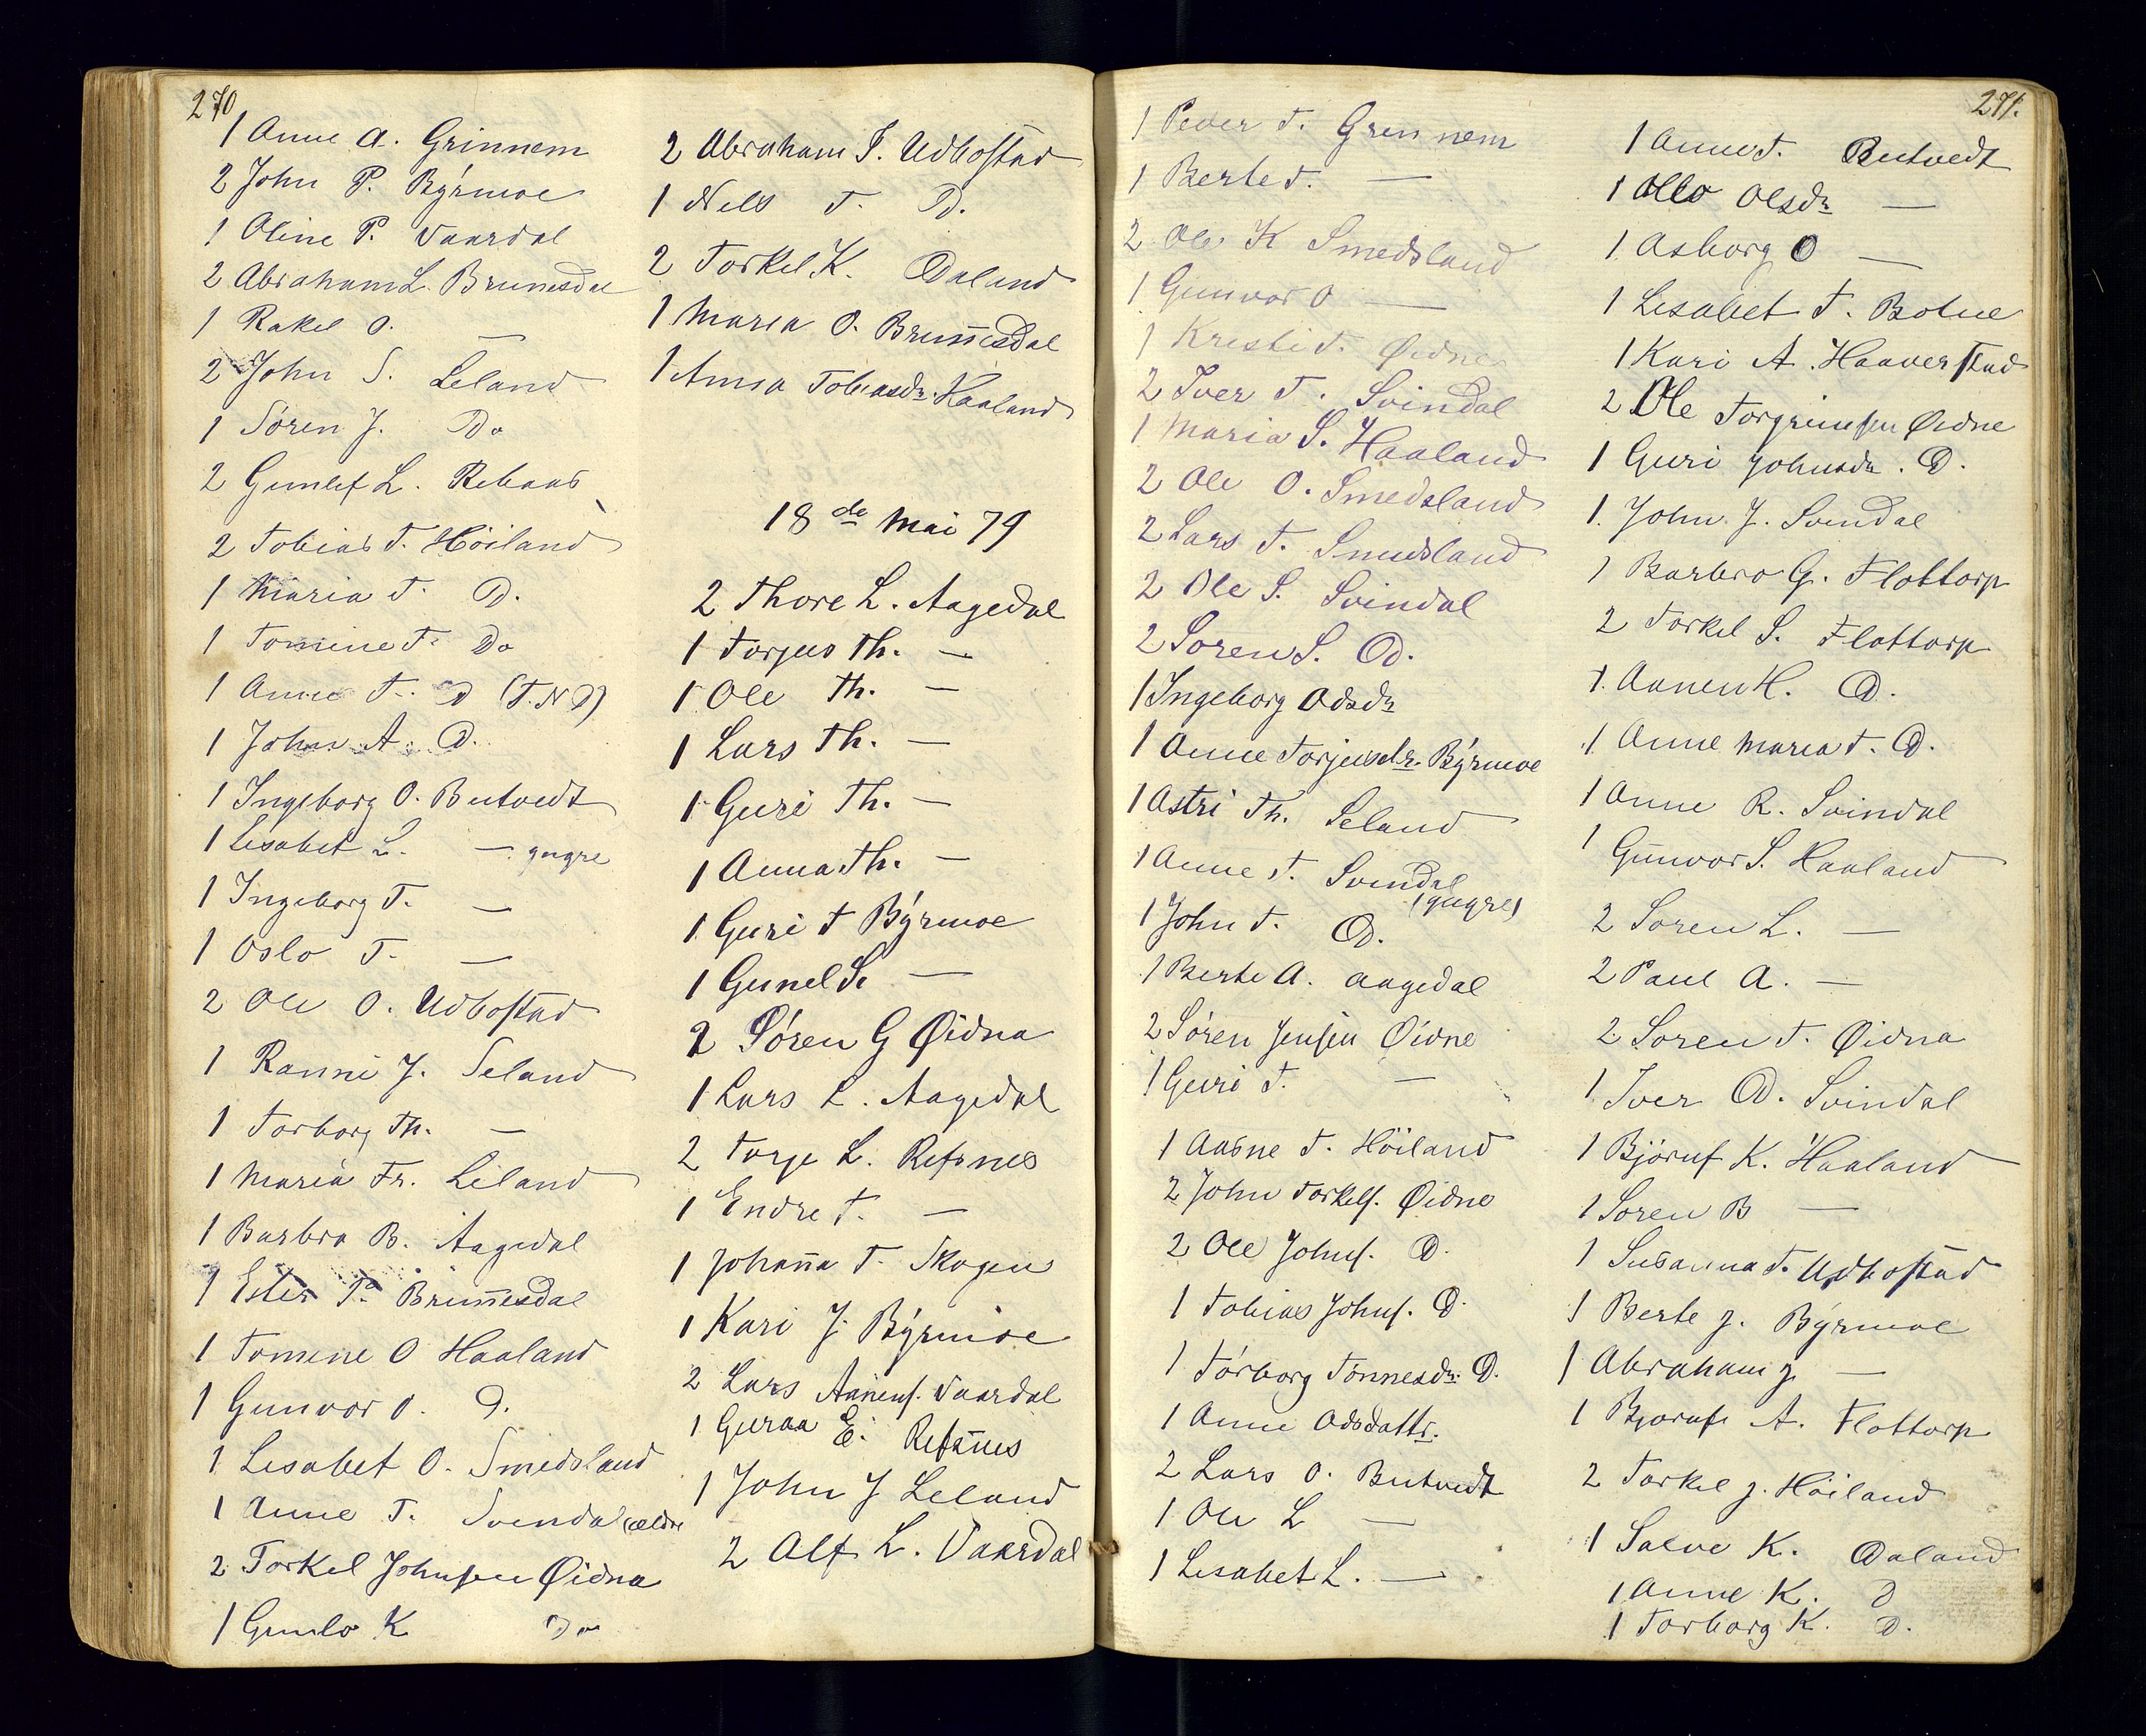 270
1 Anne A. Grinnem
2 John P. Býrmoe
1 Oline P. Vaardal
2 Abraham L. Brunesdal
1 Rakel O. —
2 John S. Leland
1 Sören J. Do
2 Gunlef L. Rebaas
2 Tobias T. Höiland
1 Maria T. D.
1 Tomine T. Do
1 Anne T. D (T.N.D)
1 John A. D.
1 Ingeborg O. Butvedt
1 Lisabet L. — yngre
1 Ingeborg T. —
1 Oslo T. —
2 Ole O. Udbostad
1 Ranni J. Seland
1 Torborg Th. —
1 Maria Fr. Leland
1 Barbra B. Aagedal
1 Ester P. Brun̄esdal
1 Tomine O Haaland
1 Gunvor O. D.
1 Lisabet O. Smedsland
1 Anne T. Svendal (ældre
2 Torkel Johnsen Øidna
1 Gunlo K Do
2 Abraham T. Udbostad
1 Nels T. D.
2 Torkel K. Daland
1 Maria O. Brun̄esdal
1 Anna Tobiasdr. Haaland
18de Mai 79
2 Thore L. Aagedal
1 Torjus Th. —
1 Ole Th. —
1 Lars Th. —
1 Guri Th. —
1 Anna Th. —
1 Guri T Býrmoe
1 Gunel S. —
2 Sören G Øidna
1 Lars L. Aagedal
2 Torje L. Refsnes
1 Endre T. —
1 Johan̄a T. Skogen
1 Kari J. Býrmoe
2 Lars Aanens. Vaardal
1 Guraa E. Refsnes
1 John J Leland
2 Alf L. Vaardal
271.
1 Peder T. Grennem
1 Berte T. —
2 Ole K Smedsland
1 Gunvor O —
1 Kresti T. Øidne
2 Iver T. Svindal
1 Maria S. Haaland
2 Ole O. Smedsland
2 Lars T. Smedsland
2 Ole S. Svindal
2 Soren S. D.
1 Ingeborg Odsdr
1 Anne Torjusdr. Býrmoe
1 Astri Th. Seland
1 Anne T. Svendal (yngre)
1 John T. D.
1 Berte A. Aagedal
2 Sören Jensen Øidne
1 Guri T. —
1 Aasne T. Höiland
2 John Torkels. Øidne
2 Ole Johns. D.
1 Tobias Johns. D.
1 Torborg Tönnesdr. D.
1 Anne Odsdattr.
2 Lars O. Butvedt
1 Ole L —
1 Lisabet L. —
1 Anne T. Butvedt
1 Ollo Olsdr —
1 Asborg O —
1 Lisabet T. Botne
1 Kari A. Haaverstad
2 Ole Torgrimsen Øidne
1 Guri Johnsdr. D.
1 John J. Svendal
1 Barbro G. Flottorp
2 Torkel S. Flottorp
1 Aanen H. D.
1 Anne Maria T. D.
1 Anne R. Svindal
1 Gunvor S. Haaland
2 Soren L. —
2 Paul A. —
2 Soren T. Øidna
1 Iver D. Svindal
1 Björnf K. Haaland
1 Soren B —
1 Susanna T. Udbostad
1 Berte J. Býrmoe
1 Abraham J. —
1 Bjoruf A. Flottorp
2 Torkel J. Höiland
1 Salve K. Daland
1 Anne K. D
1 Torborg K. D.